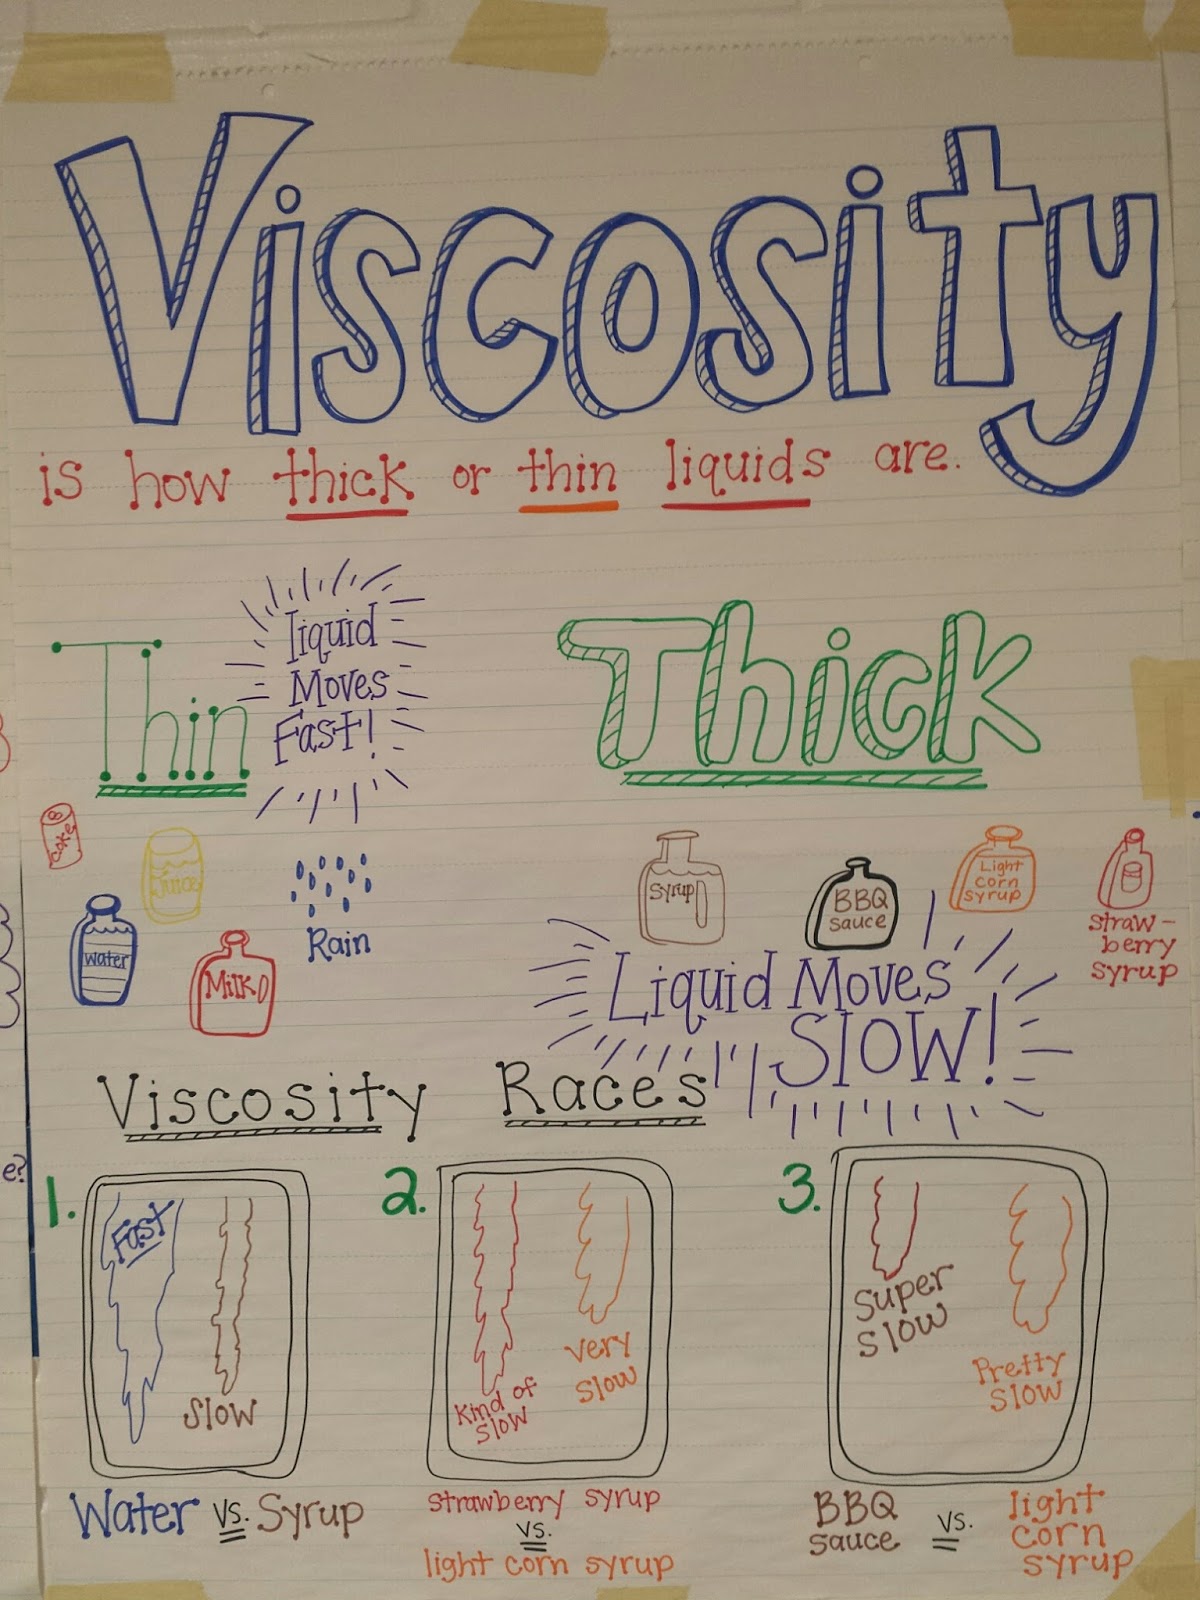 Viscosity
is how thick or thin liquids are.
Thin
Liquid
Moves
Fast!
Thick
Coke
Juice
Water
Milk
Rain
Syrup
BBQ
sauce
Light
corn
syrup
straw-
berry
syrup
Liquid Moves
SlOW!
Viscosity Races
1.
Fast
Slow
2.
Kind of
slow
very
slow
3.
super
slow
Pretty
slow
Water vs. Syrup
strawberry syrup
vs.
light corn syrup
BBQ
sauce
vs.
light
corn
syrup
e?